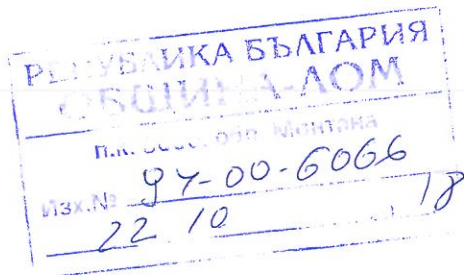 РЕПУБЛИКА БЪЛГАРИЯ
ОБЩИНА-ЛОМ
п.к. обл. Монтана
Изх.№ 94-00-6066
22 10 18